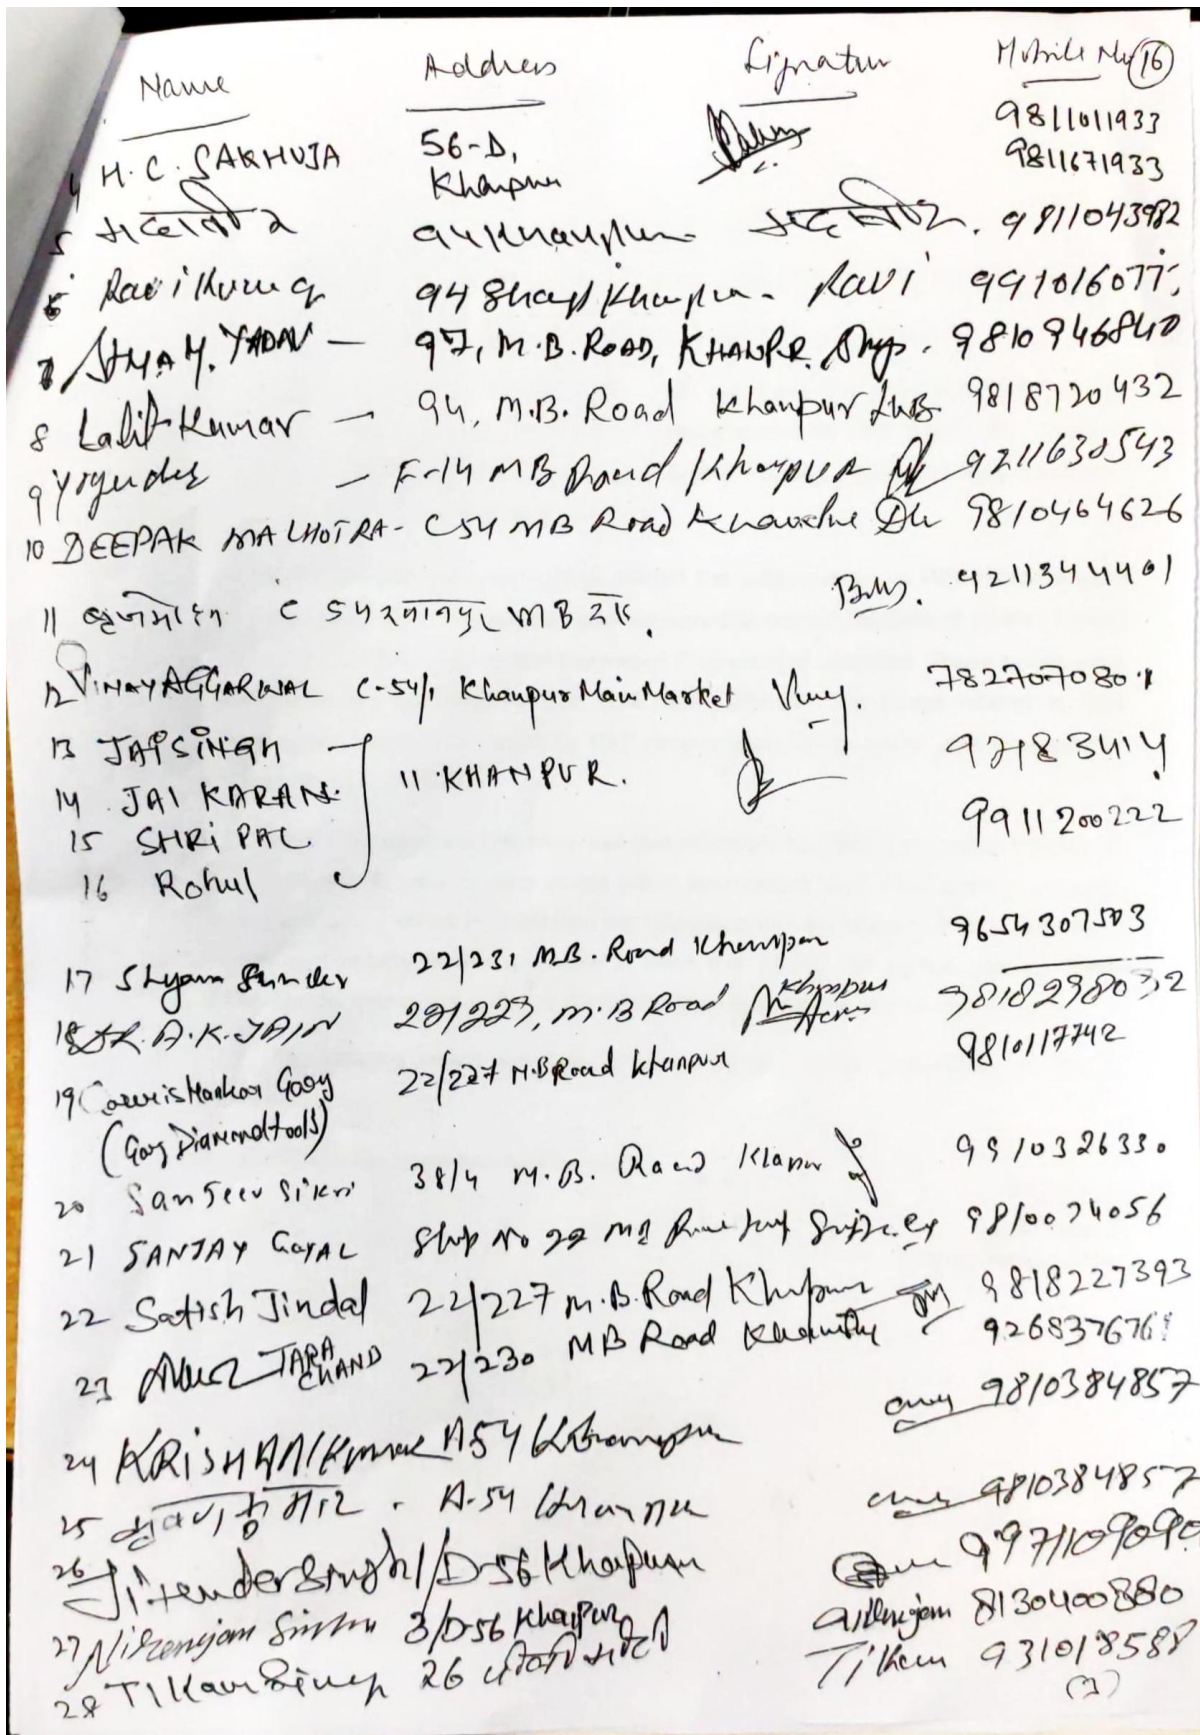 Name Address Signatur Mobile No (16)
4 H.C. SAKHUJA 56-D, 9811011933
Khanpur 9811671933
5 94 Khanpur 9811043982
6 Ravi Kumar 94 Shop Khanpur - Ravi 991016077
7 SHYAM. YADAV — 97, M.B. ROAD, KHANPUR. 9810946840
8 Lalit Kumar — 94, M.B. Road Khanpur 9818720432
9 Yogender — F-14 MB Road Khanpur 9211630543
10 DEEPAK MALHOTRA - C54 MB Road 9810464626
11 बृजमोहन C 54 खानपुर MB रोड. 9211344401
12 VINAY AGGARWAL C-54/1 Khanpur Main Market Vinay. 7827070801
13 JAI SINGH
14 JAI KARAN 11 KHANPUR.
15 SHRI PAL 9911200222
16 Rohul
17 Shyam Sunder 22/231 M.B. Road Khanpur 9654307503
18 DR. A.K. JAIN 221223, M.B Road Khanpur 9818298032
19 Gowrishankar Garg 22/227 M.B Road Khanpur 9810117742
(Garg Diamond tools)
20 Sanjeev Sikri 38/4 M.B. Road 9910326330
21 SANJAY GOYAL Shop No 22 MB 9810074056
22 Satish Jindal 22/227 M.B. Road Khanpur 9818227393
23 TARA CHAND 22/230 MB Road 926837676
24 KRISHAN Kumar A54 Khanpur 9810384857
25 A-54 Khanpur 9810384857
26 Jitender Singh 1/D-56 Khanpur 9971109090
27 Niranjan Singh 3/D-56 Khanpur Niranjan 8130400880
28 Tikam Singh 26 Tikam 931018588